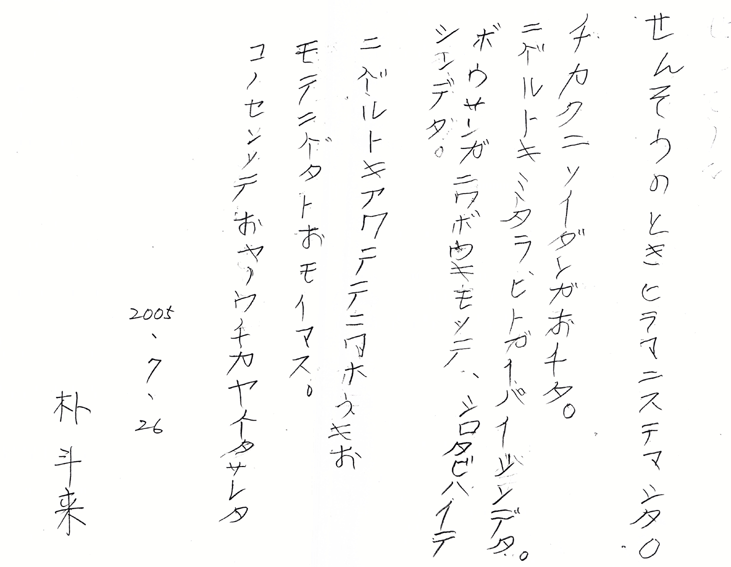 せんそうのときヒラマニステマシタ。
チカクニソイダンガおチタ。
ニゲルトキミタラ、ヒトガイパイシンデタ。
ボウサンガニワボウキモッテ、シロタビハイテ
シンデタ。
ニゲルトキアワテテテニワホうキお
モテニゲタトおモイマス。
コノセンソデおヤノウチカヤイタサレタ
2005、7、26
朴斗来